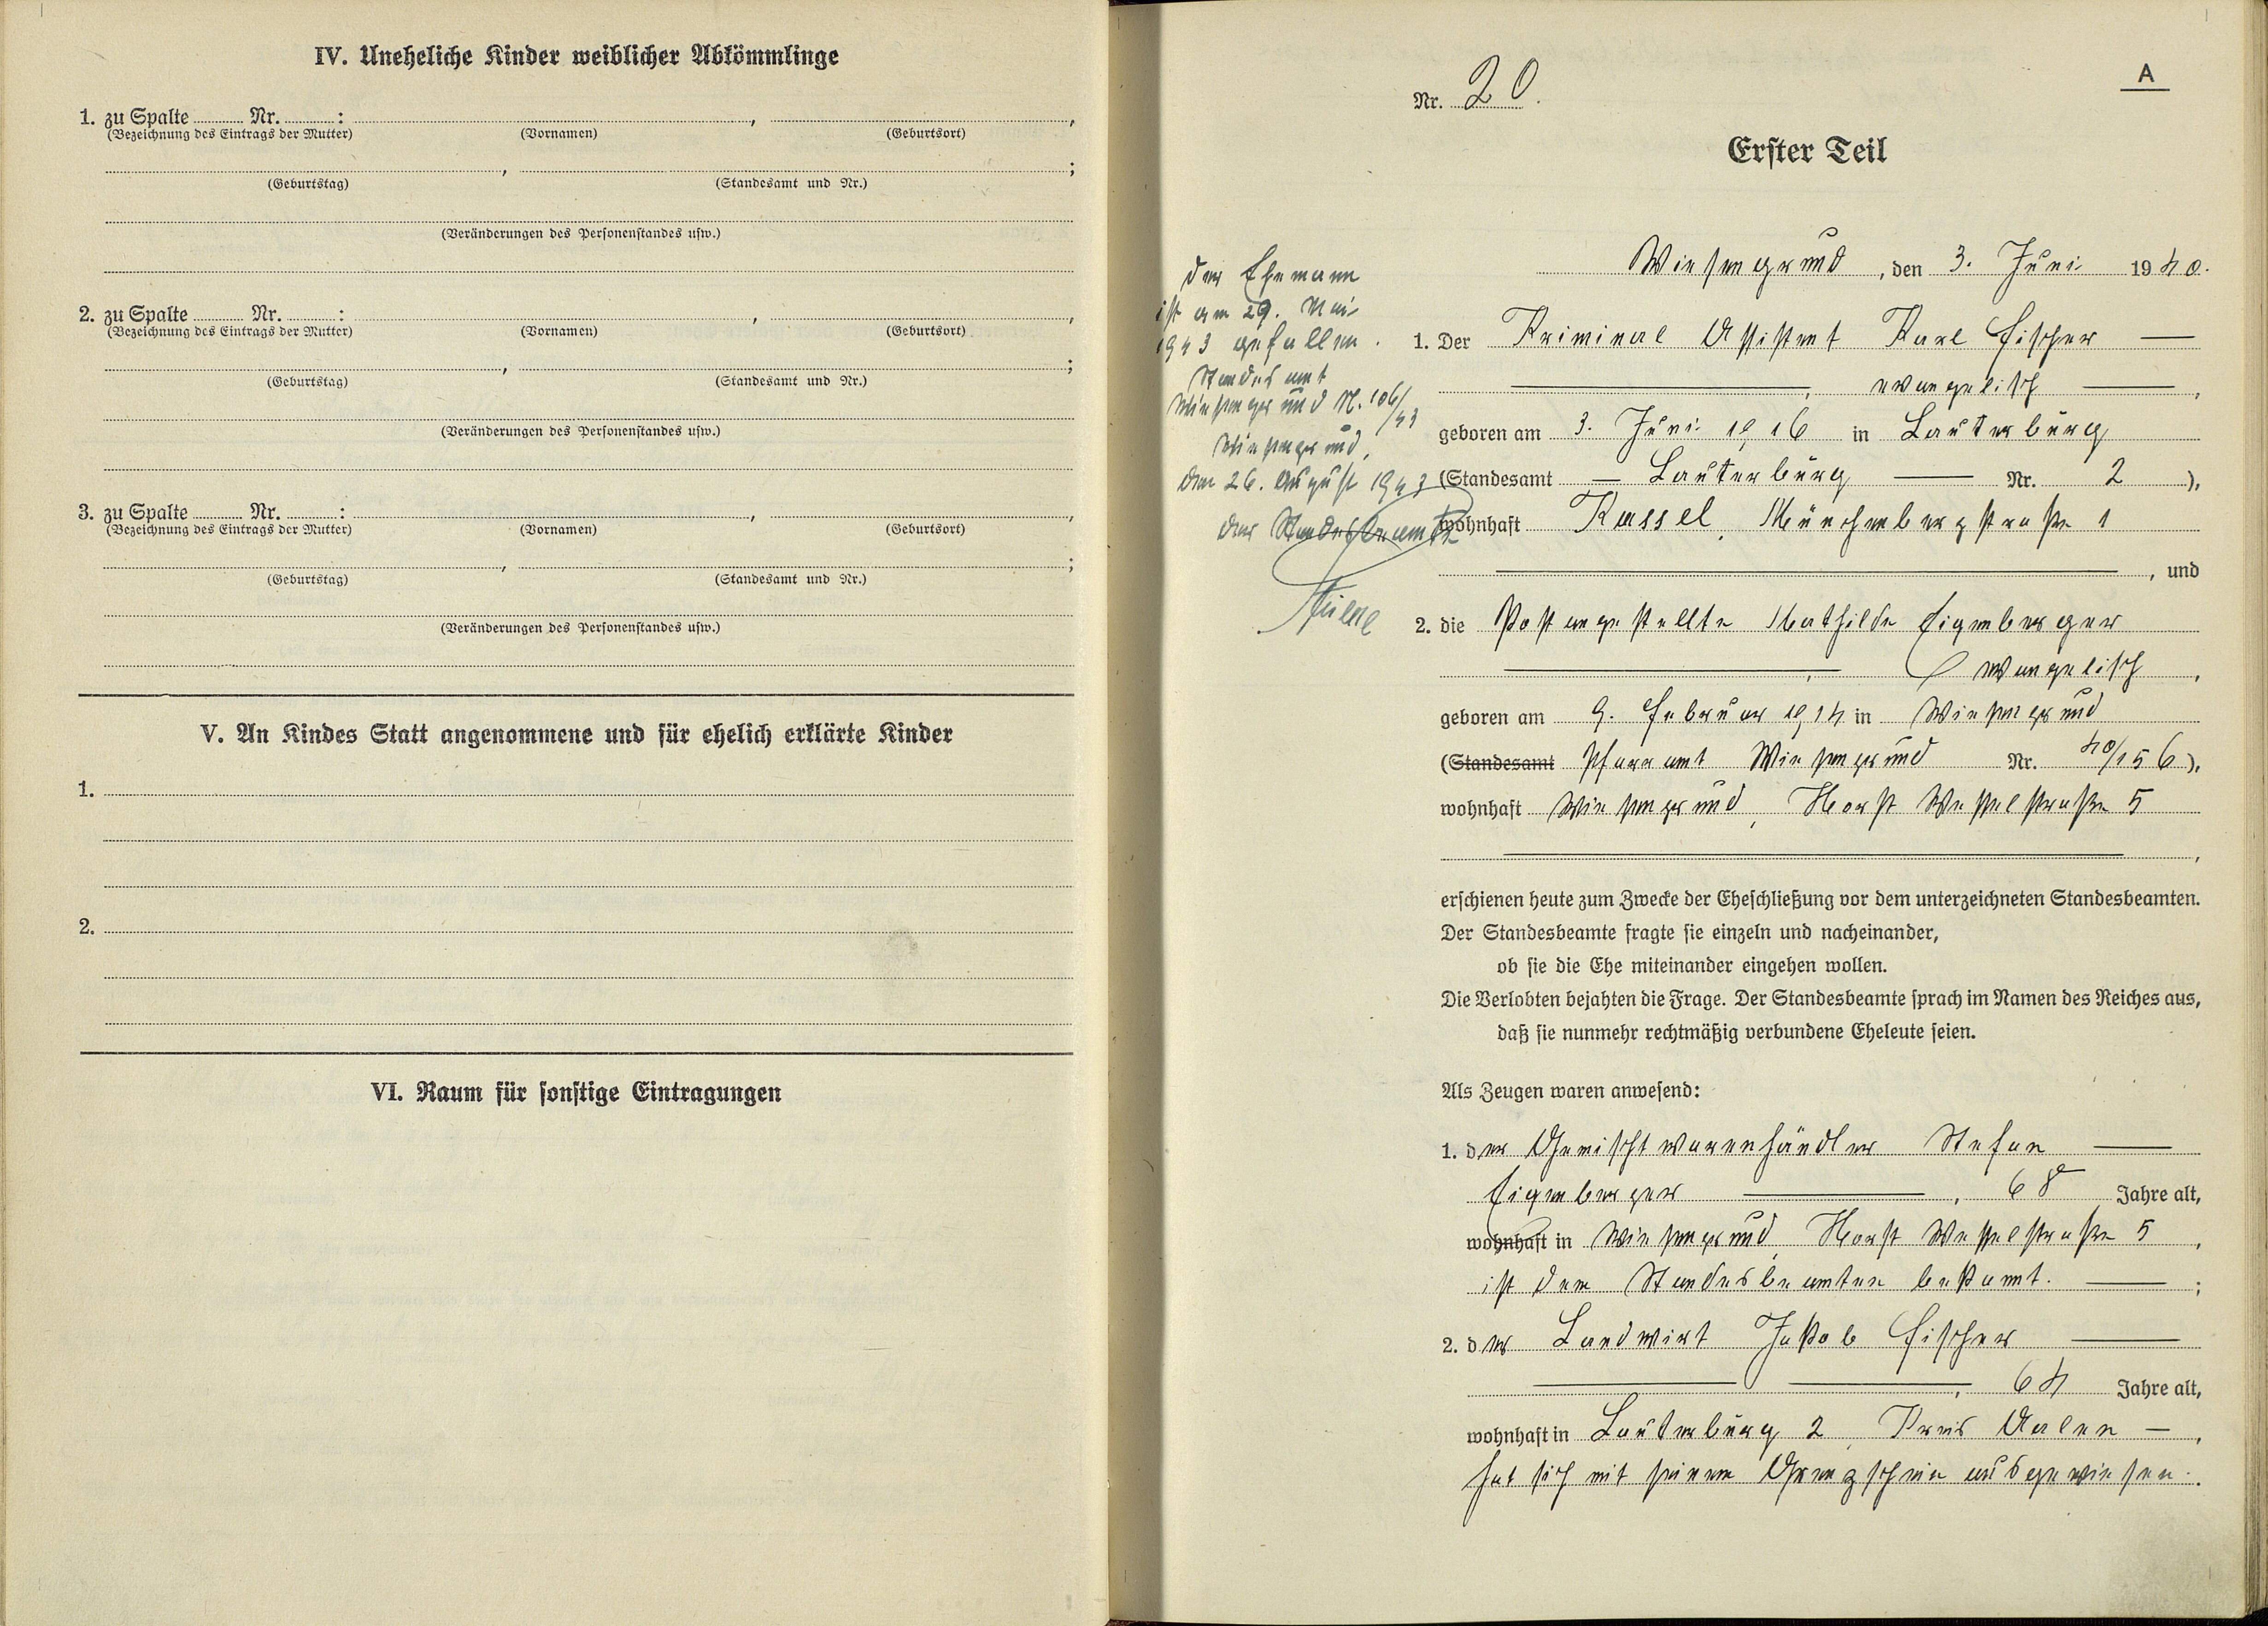 IV. Uneheliche Kinder weiblicher Abkömmlinge
1. zu Spalte Nr. : , ,
(Bezeichnung des Eintrags der Mutter) (Vornamen) (Geburtsort)
, ;
(Geburtstag) (Standesamt und Nr.)
(Veränderungen des Personenstandes usw.)
2. zu Spalte Nr. : , ,
(Bezeichnung des Eintrags der Mutter) (Vornamen) (Geburtsort)
, ;
(Geburtstag) (Standesamt und Nr.)
(Veränderungen des Personenstandes usw.)
3. zu Spalte Nr. : , ,
(Bezeichnung des Eintrags der Mutter) (Vornamen) (Geburtsort)
, ;
(Geburtstag) (Standesamt und Nr.)
(Veränderungen des Personenstandes usw.)
V. An Kindes Statt angenommene und für ehelich erklärte Kinder
1.
2.
VI. Raum für sonstige Eintragungen
A
Nr. 20.
Erster Teil
Wiesengrund, den 3. Juni 1940.
1. Der Kriminal Assistent Karl Fischer —
—, evangelisch —,
geboren am 3. Juni 1916 in Lauterburg
(Standesamt — Lauterburg — Nr. 2),
wohnhaft Kassel, Münchenbergstraße 1
—, und
2. die Postangestellte Mathilde Eigenberger
—, evangelisch,
geboren am 9. Februar 1914 in Wiesengrund
(Standesamt Pfarramt Wiesengrund Nr. 40/156),
wohnhaft Wiesengrund, Horst Wesselstraße 5
—,
erschienen heute zum Zwecke der Eheschließung vor dem unterzeichneten Standesbeamten.
Der Standesbeamte fragte sie einzeln und nacheinander,
ob sie die Ehe miteinander eingehen wollen.
Die Verlobten bejahten die Frage. Der Standesbeamte sprach im Namen des Reiches aus,
daß sie nunmehr rechtmäßig verbundene Eheleute seien.
Als Zeugen waren anwesend:
1. der Gemischtwarenhändler Stefan —
Eigenberger —, 68 Jahre alt,
wohnhaft in Wiesengrund, Horst Wesselstraße 5,
ist dem Standesbeamten bekannt. —;
2. der Landwirt Jakob Fischer —
— —, 64 Jahre alt,
wohnhaft in Lauterburg 2, Kreis Aalen —,
hat sich mit seinem Grenzschein ausgewiesen.
der Ehemann
ist am 29. Mai
1943 gefallen.
Standesamt
Wiesengrund N. 106/43
Wiesengrund,
den 26. August 1943
der Standesbeamte